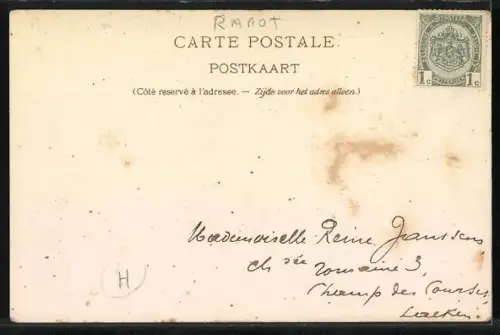 RABOT
CARTE POSTALE
POSTKAART
(Côté reservé à l'adresse. — Zijde voor het adres alleen.)
1c 1c
Mademoiselle Reine Janssens
ch sée romaine 3,
Champ des Courses,
Laeken
H